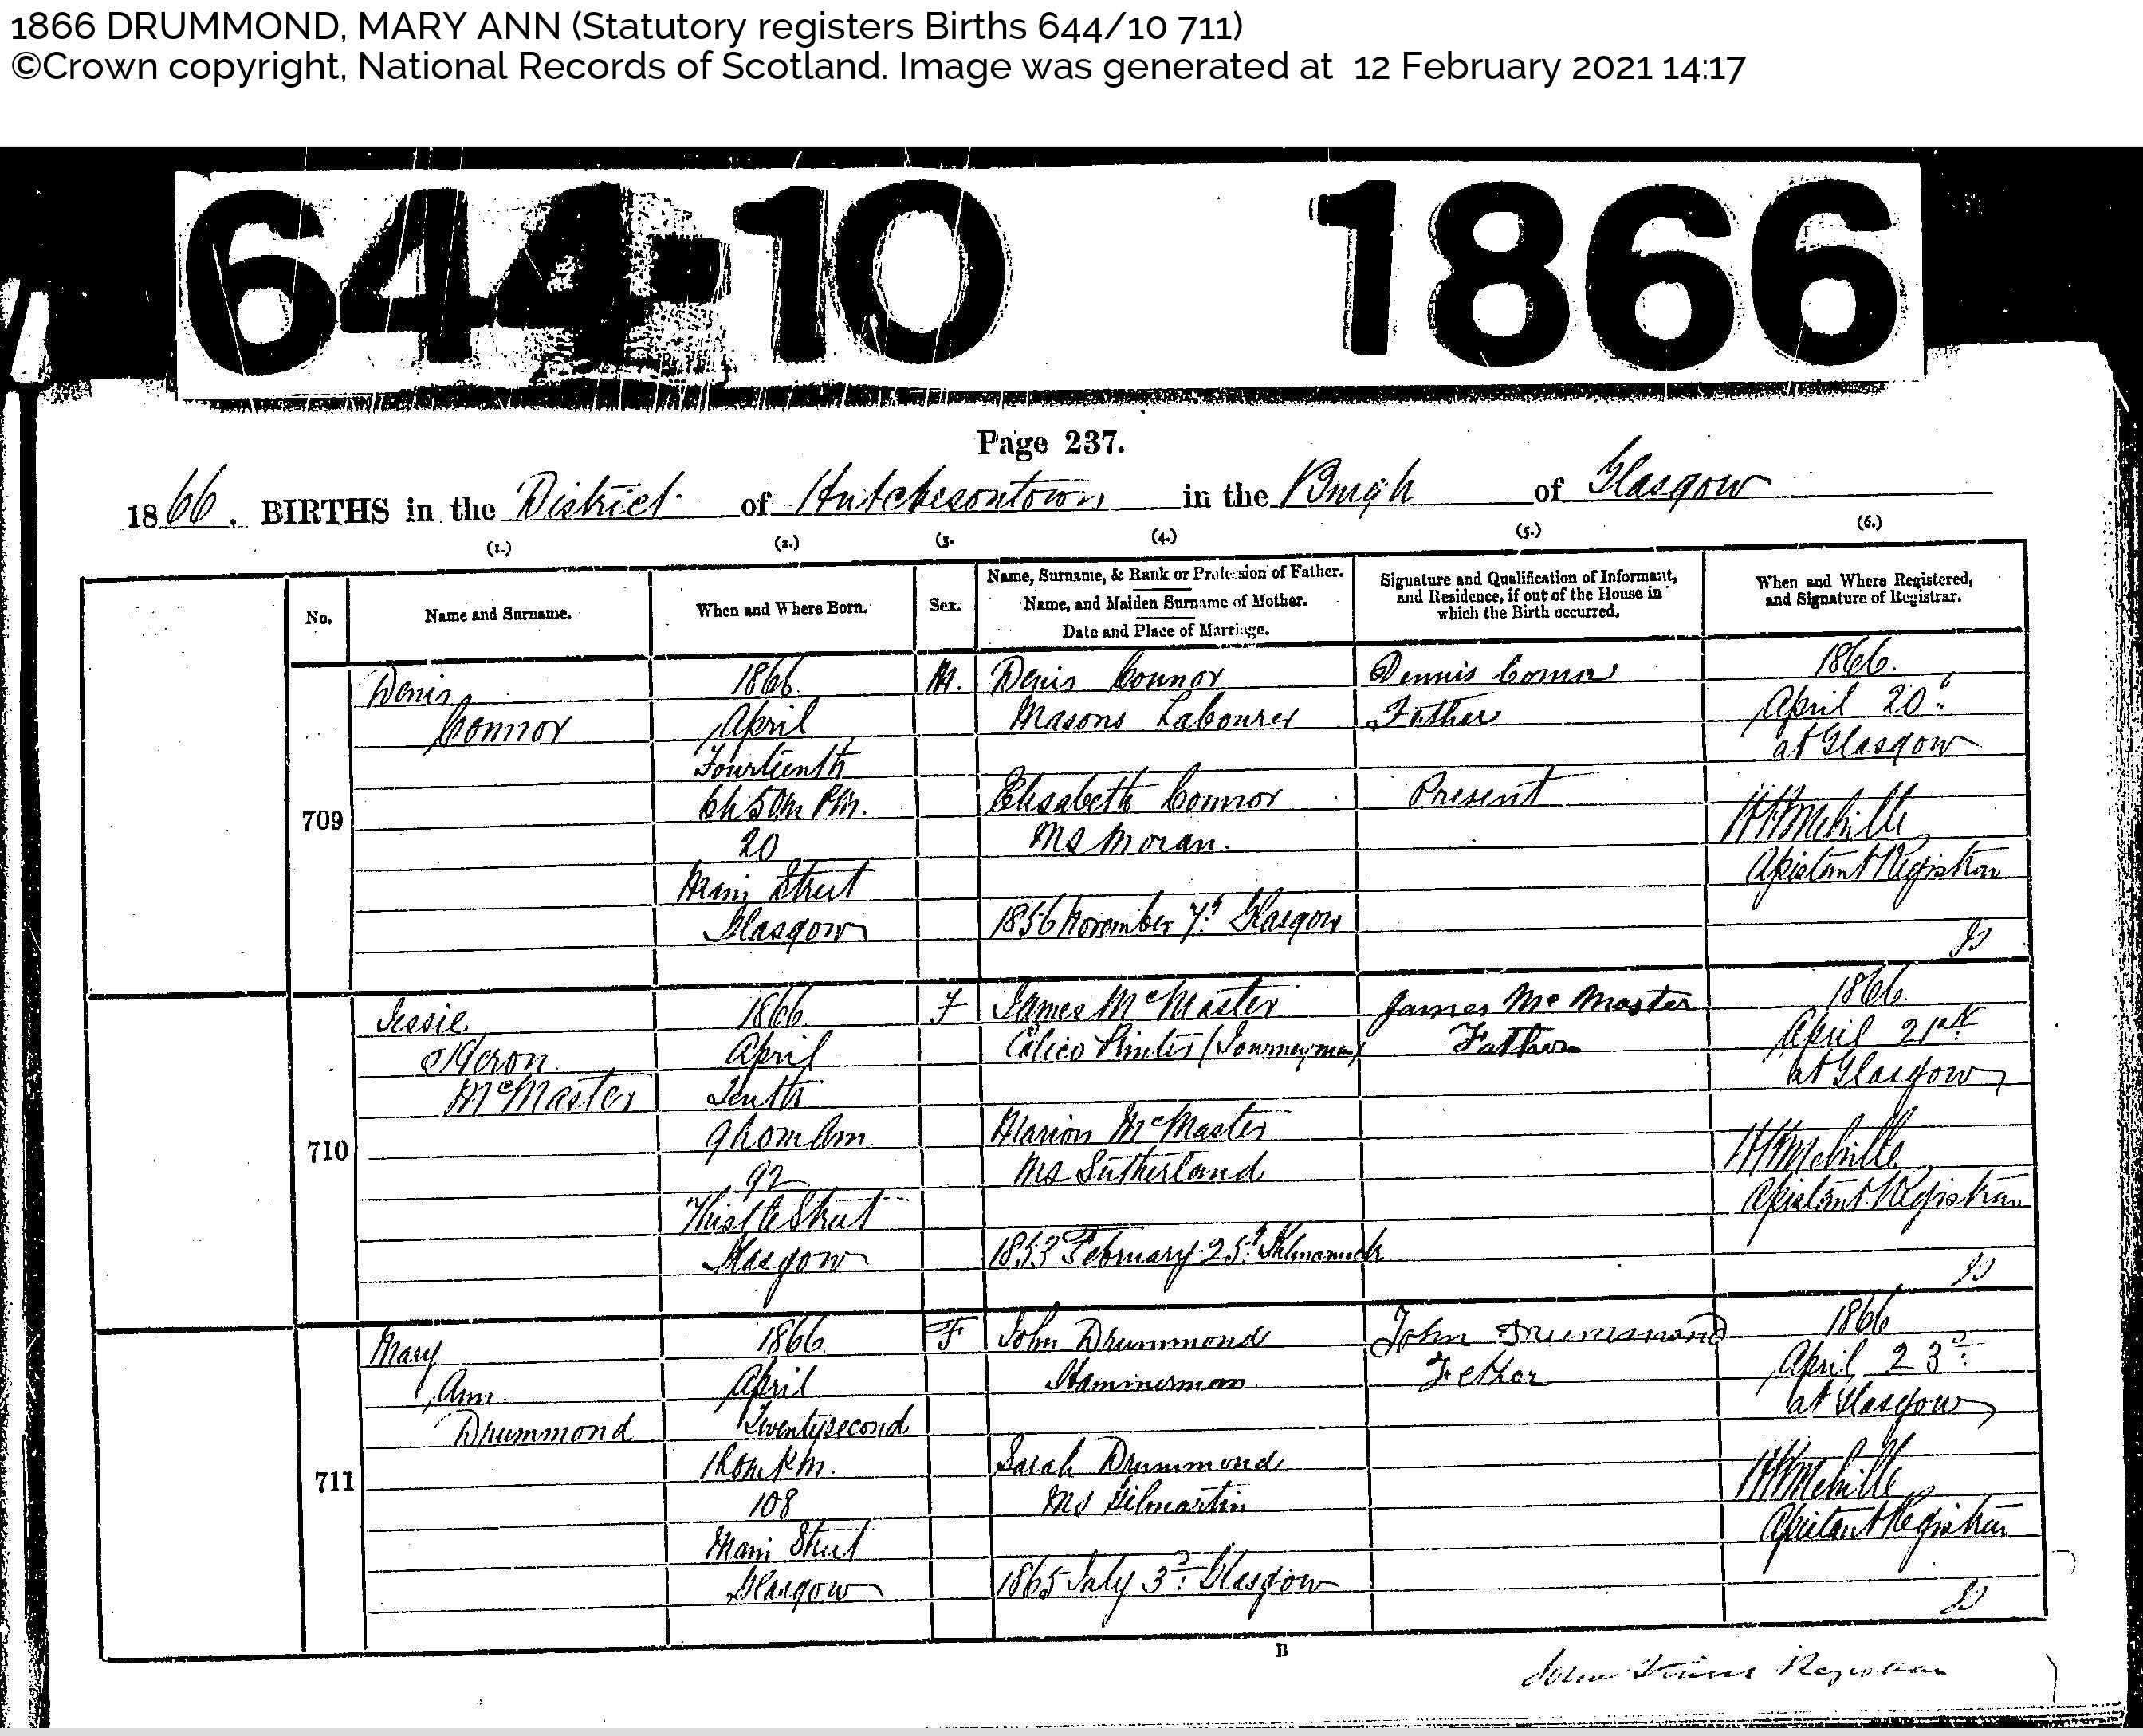 1866 DRUMMOND, MARY ANN (Statutory registers Births 644/10 711)
©Crown copyright, National Records of Scotland. Image was generated at 12 February 2021 14:17
644-10 1866
Page 237.
1866. BIRTHS in the District of Hutchesontown in the Burgh of Glasgow
(1.) (2.) (3. (4.) (5.) (6.)
No.
Name and Surname.
When and Where Born.
Sex.
Name, Surname, & Rank or Profession of Father.
Name, and Maiden Surname of Mother.
Date and Place of Marriage.
Signature and Qualification of Informant,
and Residence, if out of the House in
which the Birth occurred.
When and Where Registered,
and Signature of Registrar.
709
Denis
Connor
1866
April
Fourteenth
6h 50m PM.
20
Main Street
Glasgow
M.
Denis Connor
Masons Labourer
Elisabeth Connor
MS Moran.
1856 November 7th Glasgow
Dennis Connor
Father
Present
1866.
April 20th
at Glasgow
Melville
Assistant Registrar
710
Jessie
Heron
McMaster
1866
April
Tenth
9h 0m Am
92
Thistle Street
Glasgow
F
James McMaster
Calico Printer (Journeyman)
Marion McMaster
MS Sutherland
1853 February 25th Kilmarnock
James Mc Master
Father
1866.
April 21st
at Glasgow
Melville
Assistant Registrar
711
Mary
Ann
Drummond
1866
April
Twentysecond
1h 0m PM.
108
Main Street
Glasgow
F
John Drummond
Hammerman
Sarah Drummond
MS Gilmartin
1865 July 3d Glasgow
John Drummond
Fether
1866
April 23d
at Glasgow
Melville
Assistant Registrar
B
John Registrar